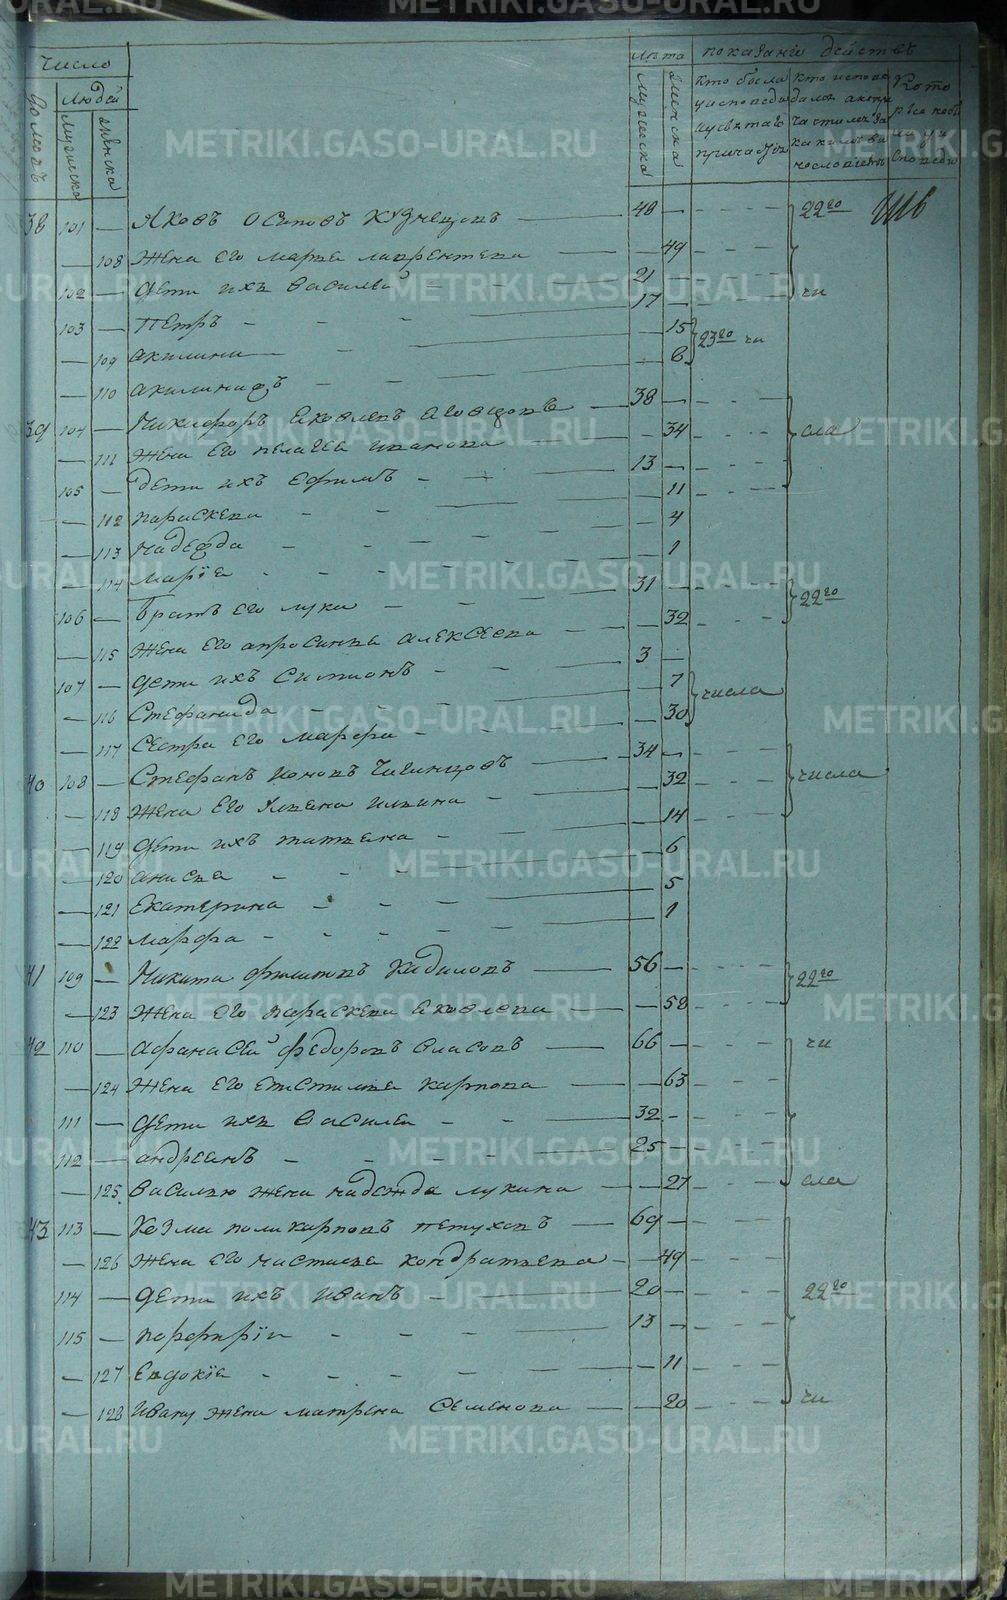 число
людей
домовъ
мужеска
женска
лѣта
мужеска
женска
показаніе дѣйствъ
кто были
у исповѣди
и у святаго
причастія
кто испове
дался а не при
частился и за
какимъ ви
нословіемъ
Кото
рые не бы
ли у и
сповѣди
38 101 — Яковъ Осиповъ Кузнецовъ — 48 — 22го
— 108 жена его марья лаврентева — 49
102 — дети ихъ василей — 21 чи
103 — петръ — 17
— 109 акилина — 15 23го чи
— 110 акилина — 6
39 104 — Никифоръ Яковлевъ — 38
— 111 жена его пелагея иванова — 34 сла
105 — дети ихъ ефимъ — 13
— 112 параскева — 11
— 113 надежда — 4
— 114 марія — 1
106 — братъ его лука — 31 22го
— 115 жена его апросинья алексеева — 32
107 — дети ихъ симионъ — 3
— 116 Стефанида — 7 числа
— 117 сестра его марфа — 30
40 108 — Стефанъ — 34 числа
— 118 жена его ильина — 32
— 119 дети ихъ татьяна — 14
— 120 анисья — 6
— 121 Екатерина — 5
— 122 марфа — 1
41 109 — Никита филиповъ — 56 22го
— 123 жена его параскева яковлева — 58
42 110 — афанасей федоровъ власовъ — 66 чи
— 124 жена его карпова — 63
111 — дети ихъ василей — 32
112 — андреянъ — 25
— 125 василью жена надежда лукина — 27 сла
43 113 — Козма поликарповъ петуховъ — 69
— 126 жена его настасья кондратьева — 49
114 — дети ихъ иванъ — 20 22го
115 — порфирій — 13
— 127 Евдокія — 11
— 128 ивану жена матрена семенова — 20 чи
METRIKI.GASO-URAL.RU